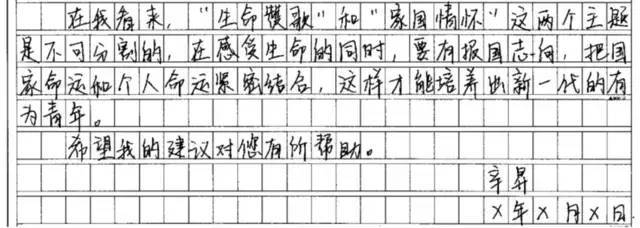 在我看来，“生命赞歌”和“家国情怀”这两个主题
是不可分割的，在感受生命的同时，要有报国志向，把国
家命运和个人命运紧密结合，这样才能培养出新一代的有
为青年。
希望我的建议对您有所帮助。
辛昇
X年X月X日